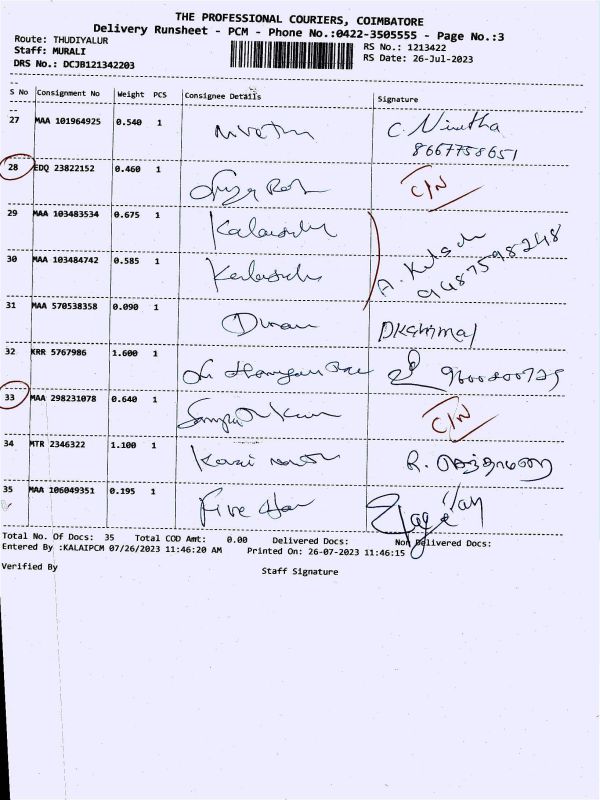 THE PROFESSIONAL COURIERS, COIMBATORE
Delivery Runsheet - PCM - Phone No.:0422-3505555 - Page No.:3
Route: THUDIYALUR
Staff: MURALI
DRS No.: DCJB121342203
RS No.: 1213422
RS Date: 26-Jul-2023
S No Consignment No Weight PCS Consignee Details Signature
27 MAA 101964925 0.540 1 C. Nivetha
8667758651
28 EDQ 23822152 0.460 1 C/N
29 MAA 103483534 0.675 1
30 MAA 103484742 0.585 1 A.
9487598248
31 MAA 570538358 0.090 1
32 KRR 5767986 1.600 1
33 MAA 298231078 0.640 1 C/N
34 MTR 2346322 1.100 1 R.
35 MAA 106049351 0.195 1 Five Star
Total No. Of Docs: 35 Total COD Amt: 0.00 Delivered Docs: Non Delivered Docs:
Entered By :KALAIPCM 07/26/2023 11:46:20 AM Printed On: 26-07-2023 11:46:15
Verified By Staff Signature